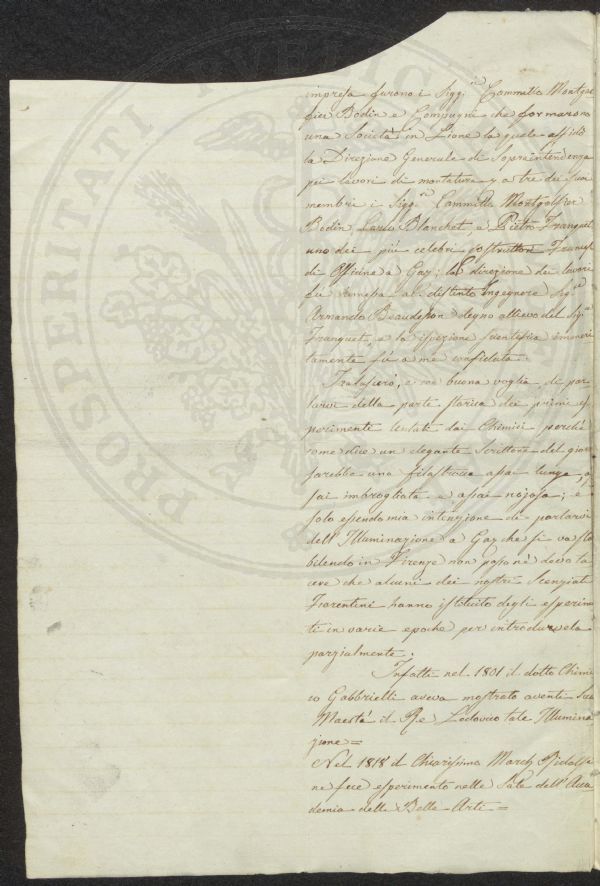 impresa furono i Sigg.ri Cammillo Montgol
fier Bodin e Compagni che formarono
una Società in Lione la quale affidò
la Direzione Generale di Sopraintendenza
pei lavori di montatura a tre dei suoi
membri i Sigg.ri Cammillo Montgolfier
Bodin, Carlo Blanchet, e Pietro Franquet
uno dei più celebri costruttori Francesi
di Officine a Gaz; la direzione dei lavori
fu rimessa al distinto Ingegnere Sig.re
Armando Beaudesson degno allievo del Sig.re
Franquet, e la ispezione scientifica immeri
tamente fù a me confidata.
Tralascierò, e con buona voglia di par
larvi della parte storica dei primi es
perimenti tentati dai Chimici perchè
come dice un elegante Scrittore del gior
sarebbe una filastrocca assai lunga, as
sai imbrogliata e assai nojosa; e
solo essendo mia intenzione di parlarvi
dell'Illuminazione a Gaz che si va sta
bilendo in Firenze non posso nè devo ta
cere che alcuni dei nostri Scenziati
Fiorentini hanno istituito degli esperimen
ti in varie epoche per introdurvela
parzialmente.
Infatti nel 1801 il dotto Chimi
co Gabbrielli aveva mostrato avanti Sua
Maestà il Re Lodovico tale Illumina
zione=
Nel 1818 il Chiarissimo March. Ridolfi
ne fece esperimento nelle Sale dell'Acca
demia delle Belle Arti=
PROSPERITATI PVBLIC